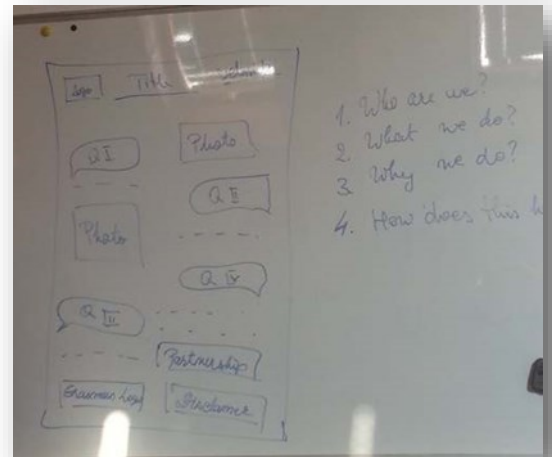 Logo Title
Q I
Photo
Q II
Photo
Q IV
Q III
Partnership
Erasmus Logo
Disclaimer
1. Who are we?
2. What we do?
3 Why we do?
4. How does this